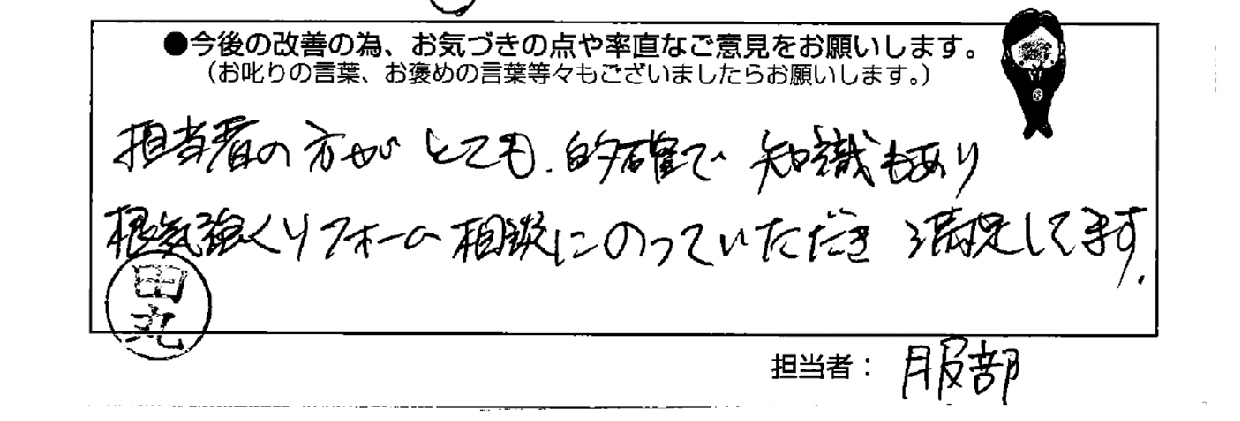 ●今後の改善の為、お気づきの点や率直なご意見をお願いします。
(お叱りの言葉、お褒めの言葉等々もございましたらお願いします。)
担当者の方がとても、的確で 知識もあり
根気強くリフォーム相談にのっていただき 満足してます。
田丸
担当者： 服部